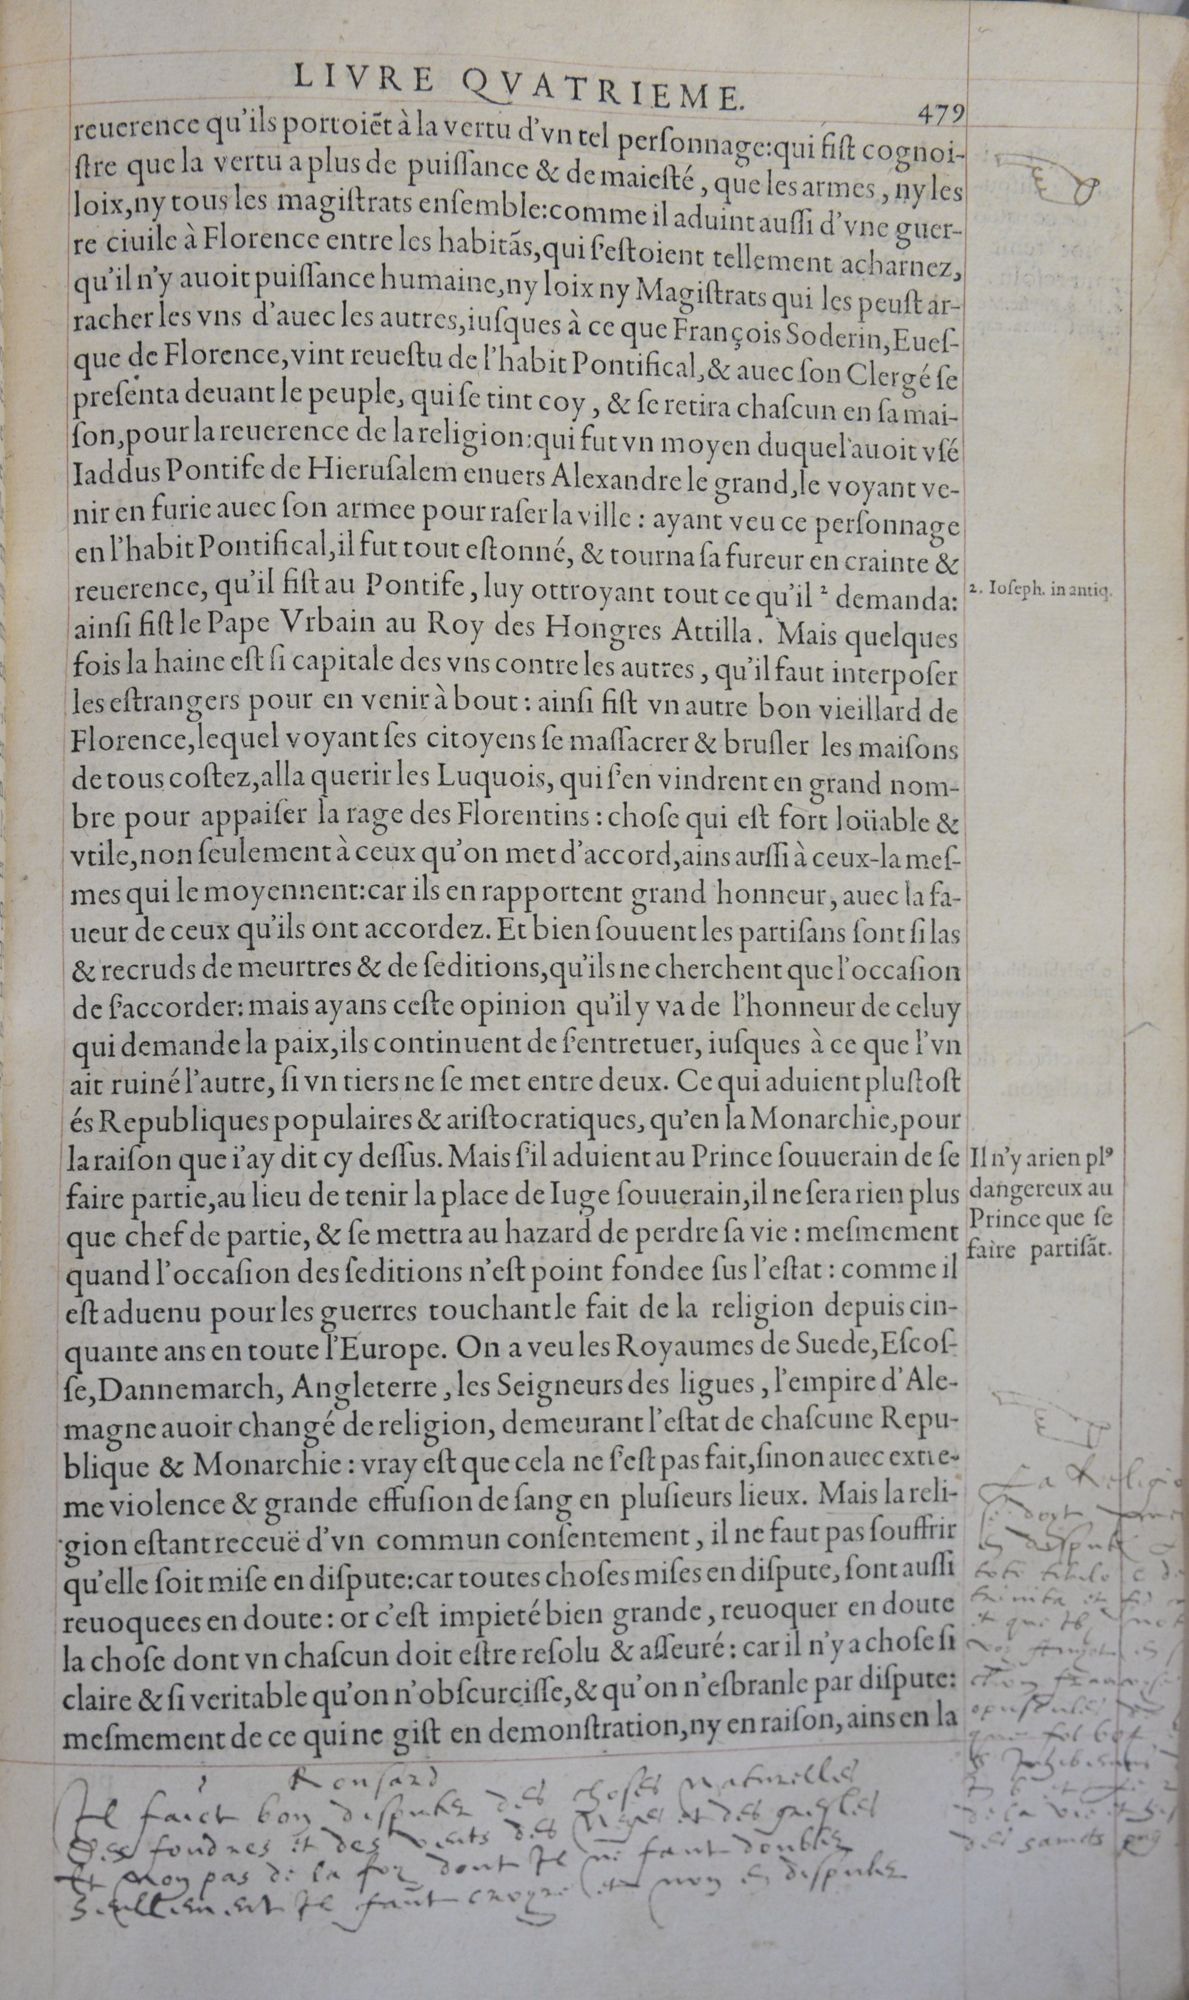 LIVRE QVATRIEME.
479
reuerence qu'ils portoiẽt à la vertu d'vn tel perſonnage:qui fiſt cognoi-
ſtre que la vertu a plus de puiſſance & de maieſté, que les armes, ny les
loix,ny tous les magiſtrats enſemble:comme il aduint auſſi d'vne guer-
re ciuile à Florence entre les habitãs,qui ſ'eſtoient tellement acharnez,
qu'il n'y auoit puiſſance humaine,ny loix ny Magiſtrats qui les peuſt ar-
racher les vns d'auec les autres,iuſques à ce que François Soderin, Eueſ-
que de Florence,vint reueſtu de l'habit Pontifical,& auec ſon Clergé ſe
preſenta deuant le peuple, qui ſe tint coy, & ſe retira chaſcun en ſa mai-
ſon,pour la reuerence de la religion:qui fut vn moyen duquel auoit vſé
Iaddus Pontife de Hieruſalem enuers Alexandre le grand,le voyant ve-
nir en furie auec ſon armee pour raſer la ville : ayant veu ce perſonnage
en l'habit Pontifical,il fut tout eſtonné, & tourna ſa fureur en crainte &
reuerence, qu'il fiſt au Pontife, luy ottroyant tout ce qu'il ² demanda:
2. Ioſeph. in antiq.
ainſi fiſt le Pape Vrbain au Roy des Hongres Attilla. Mais quelques
fois la haine eſt ſi capitale des vns contre les autres, qu'il faut interpoſer
les eſtrangers pour en venir à bout : ainſi fiſt vn autre bon vieillard de
Florence,lequel voyant ſes citoyens ſe maſſacrer & bruſler les maiſons
de tous coſtez,alla querir les Luquois, qui ſ'en vindrent en grand nom-
bre pour appaiſer la rage des Florentins : choſe qui eſt fort loüable &
vtile,non ſeulement à ceux qu'on met d'accord,ains auſſi à ceux-la meſ-
mes qui le moyennent:car ils en rapportent grand honneur, auec la fa-
ueur de ceux qu'ils ont accordez. Et bien ſouuent les partiſans ſont ſi las
& recruds de meurtres & de ſeditions,qu'ils ne cherchent que l'occaſion
de ſ'accorder: mais ayans ceſte opinion qu'il y va de l'honneur de celuy
qui demande la paix,ils continuent de ſ'entretuer, iuſques à ce que l'vn
ait ruiné l'autre, ſi vn tiers ne ſe met entre deux. Ce qui aduient pluſtoſt
és Republiques populaires & ariſtocratiques, qu'en la Monarchie,pour
la raiſon que i'ay dit cy deſſus. Mais ſ'il aduient au Prince ſouuerain de ſe
faire partie,au lieu de tenir la place de Iuge ſouuerain,il ne ſera rien plus
que chef de partie, & ſe mettra au hazard de perdre ſa vie : meſmement
Il n'y a rien plꝰ
dangereux au
Prince que ſe
faire partiſãt.
quand l'occaſion des ſeditions n'eſt point fondee ſus l'eſtat : comme il
eſt aduenu pour les guerres touchant le fait de la religion depuis cin-
quante ans en toute l'Europe. On a veu les Royaumes de Suede, Eſcoſ-
ſe,Dannemarch, Angleterre, les Seigneurs des ligues, l'empire d'Ale-
magne auoir changé de religion, demeurant l'eſtat de chaſcune Repu-
blique & Monarchie : vray eſt que cela ne ſ'eſt pas fait,ſinon auec extre-
me violence & grande effuſion de ſang en pluſieurs lieux. Mais la reli-
gion eſtant receuë d'vn commun conſentement, il ne faut pas ſouffrir
qu'elle ſoit miſe en diſpute:car toutes choſes miſes en diſpute, ſont auſſi
reuoquees en doute : or c'eſt impieté bien grande, reuoquer en doute
la choſe dont vn chaſcun doit eſtre reſolu & aſſeuré : car il n'y a choſe ſi
claire & ſi veritable qu'on n'obſcurciſſe,& qu'on n'eſbranle par diſpute:
meſmement de ce qui ne giſt en demonſtration,ny en raiſon, ains en la
La Religio
doit
diſpute
de la vie
des saincts
Ronsard
Il faict bon disputer des choses naturelles
Des foudres et des vents des neges et des gresles
Et non pas de la foy dont Il ne faut doubter
Seullement Il fault croyre et non en disputer